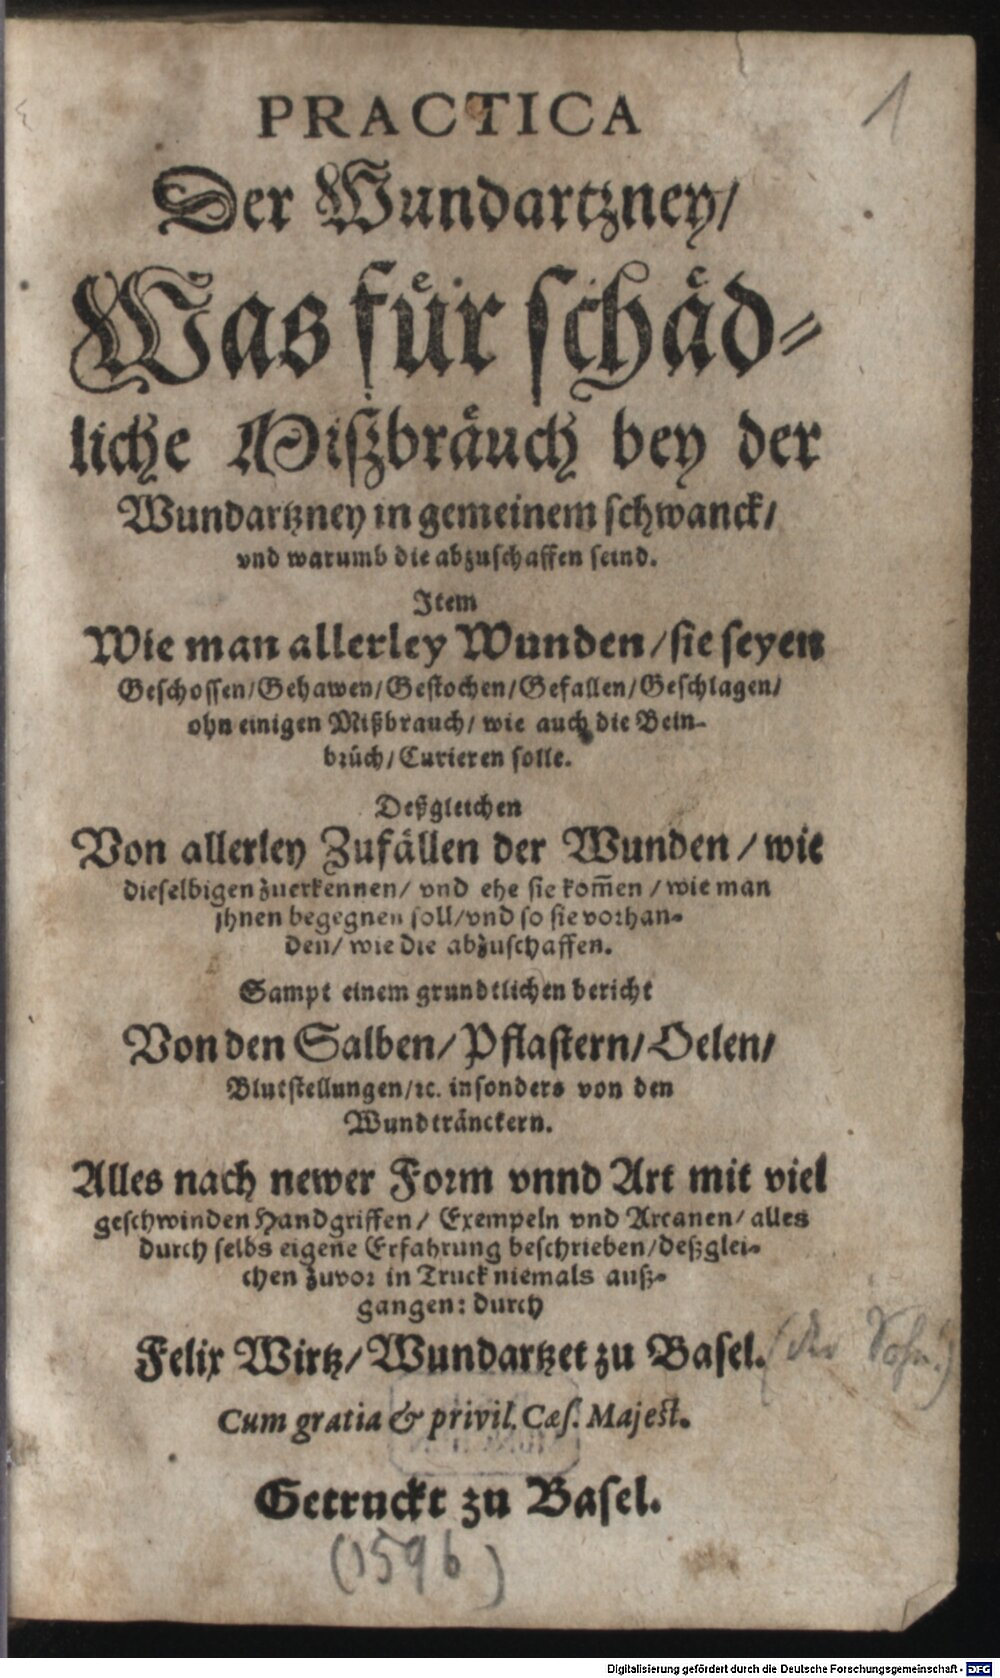 1
PRACTICA
Der Wundartzney/
Was fuͤr schaͤd-
liche Mißbraͤuch bey der
Wundartzney in gemeinem schwanck/
vnd warumb die abzuschaffen seind.
Item
Wie man allerley Wunden/sie seyen
Geschossen/Gehawen/Gestochen/Gefallen/Geschlagen/
ohn einigen Mißbrauch/ wie auch die Bein-
bruͤch/Curieren solle.
Deßgleichen
Von allerley Zufaͤllen der Wunden/ wie
dieselbigen zuerkennen/ vnd ehe sie kom̄en/wie man
jhnen begegnen soll/vnd so sie vorhan-
den/ wie die abzuschaffen.
Sampt einem grundtlichen bericht
Von den Salben/Pflastern/Oelen/
Blutstellungen/ꝛc. insonders von den
Wundtraͤnckern.
Alles nach newer Form vnnd Art mit viel
geschwinden Handgriffen/ Exempeln vnd Arcanen/alles
durch selbs eigene Erfahrung beschrieben/deßglei-
chen zuvor in Truck niemals auß-
gangen: durch
Felix Wirtz/Wundartzet zu Basel. (der Sohn.)
Cum gratia & privil. Cæs. Majest.
Getruckt zu Basel.
(1596)
Digitalisierung gefördert durch die Deutsche Forschungsgemeinschaft - DFG